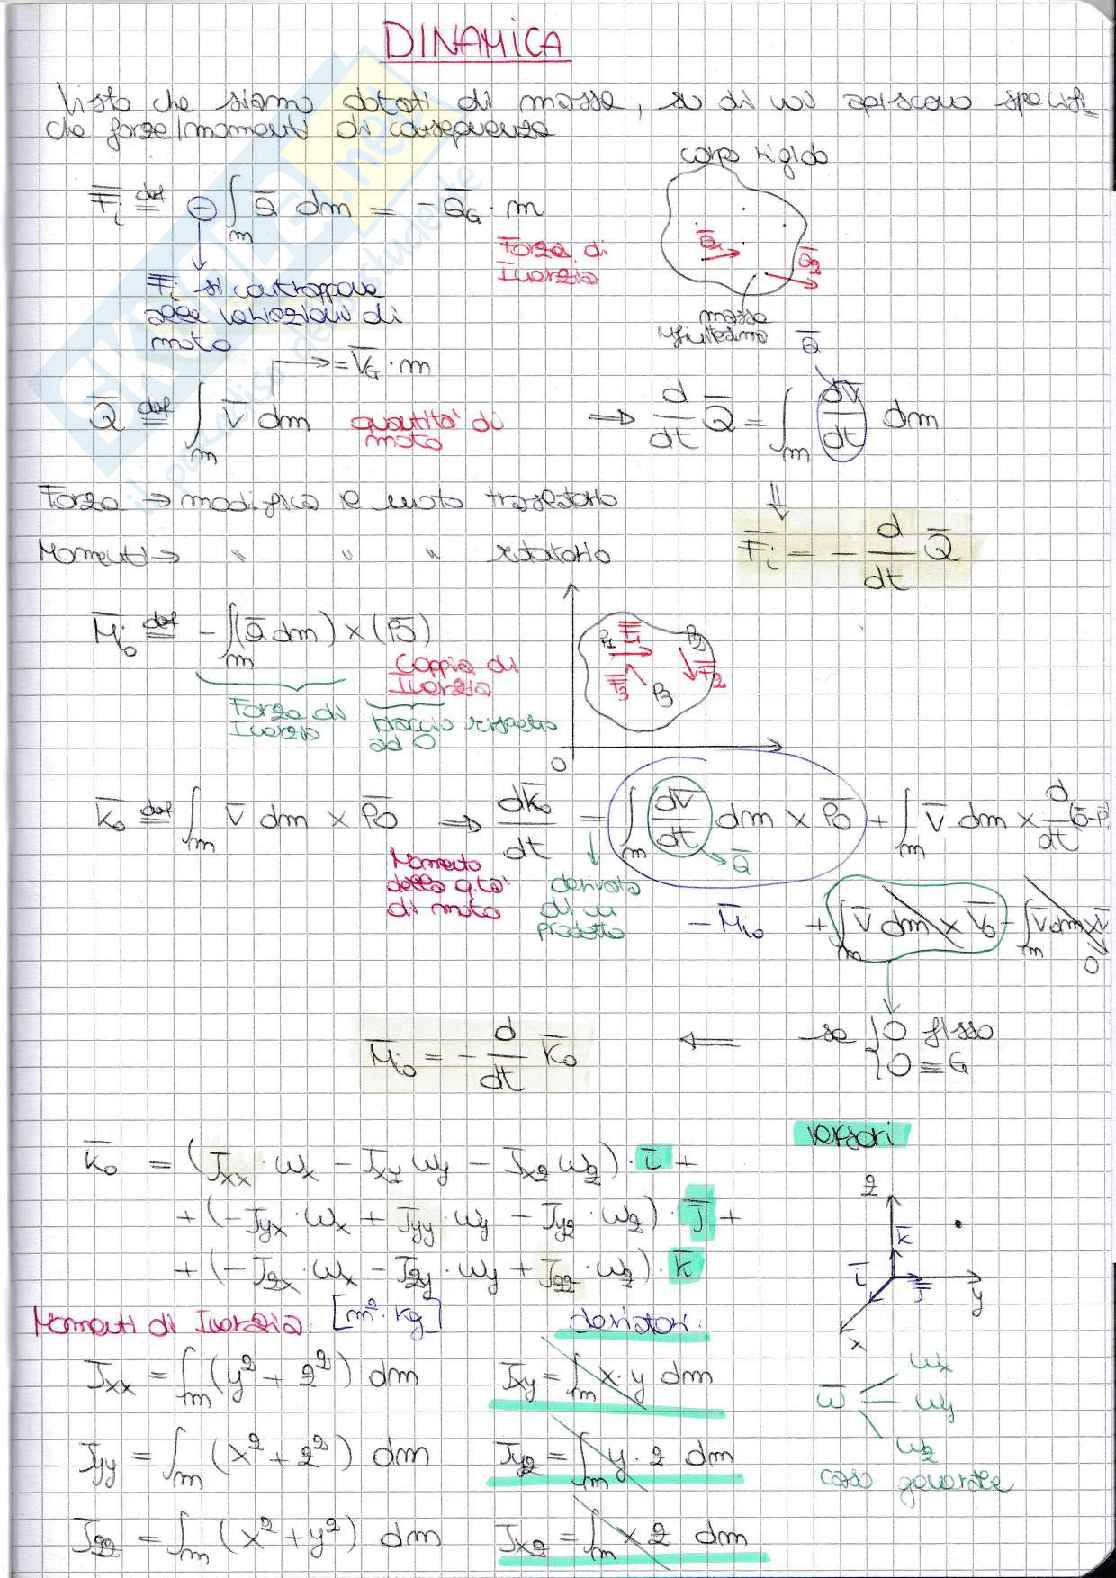 DINAMICA
Visto che siamo dotati di masse, su di noi agiscono specifi-
che forze/momenti di conseguenza
corpo rigido
F̄i def= ⊖ ∫m ā dm = -āG · m
Forza di
Inerzia
ā1
ā2
F̄i si contrappone
alle variazioni di
moto
massa
infinitesima
ā
= V̄G · m
Q̄ def= ∫m v̄ dm quantità di
moto
⇒ d/dt Q̄ = ∫m dv̄/dt dm
Forza → modifica il moto traslatorio
Momenti → " " " rotatorio
⇓
F̄i = - d/dt Q̄
M̄io def= - ∫m (ā dm) × (P̄O)
Coppia di
Inerzia
Forza di
Inerzia
braccio rispetto
ad O
P1 F̄1
P2
F̄2
F̄3
P3
O
K̄o def= ∫m v̄ dm × P̄O ⇒ dK̄o/dt = ∫m dv̄/dt dm × P̄O + ∫m v̄ dm × d/dt (O-P)
ā
Momento
della q.tà
di moto
derivata
di un
prodotto
- M̄io + ∫m v̄ dm × V̄o - ∫m v̄ dm × v̄
O
M̄io = - d/dt K̄o ⇐ se { O fisso
O ≡ G
versori
K̄o = (Jxx · ωx - Jxy ωy - Jxz ωz) · ī +
+ (-Jyx · ωx + Jyy · ωy - Jyz · ωz) · j̄ +
+ (-Jzx · ωx - Jzy · ωy + Jzz · ωz) · k̄
z
k̄
ī
j̄
y
x
Momenti di Inerzia [m² · kg] deviatori
Jxx = ∫m (y² + z²) dm Jxy = ∫m x · y dm
Jyy = ∫m (x² + z²) dm Jyz = ∫m y · z dm
Jzz = ∫m (x² + y²) dm Jxz = ∫m x z dm
ω̄
ωx
ωy
ωz
caso generale